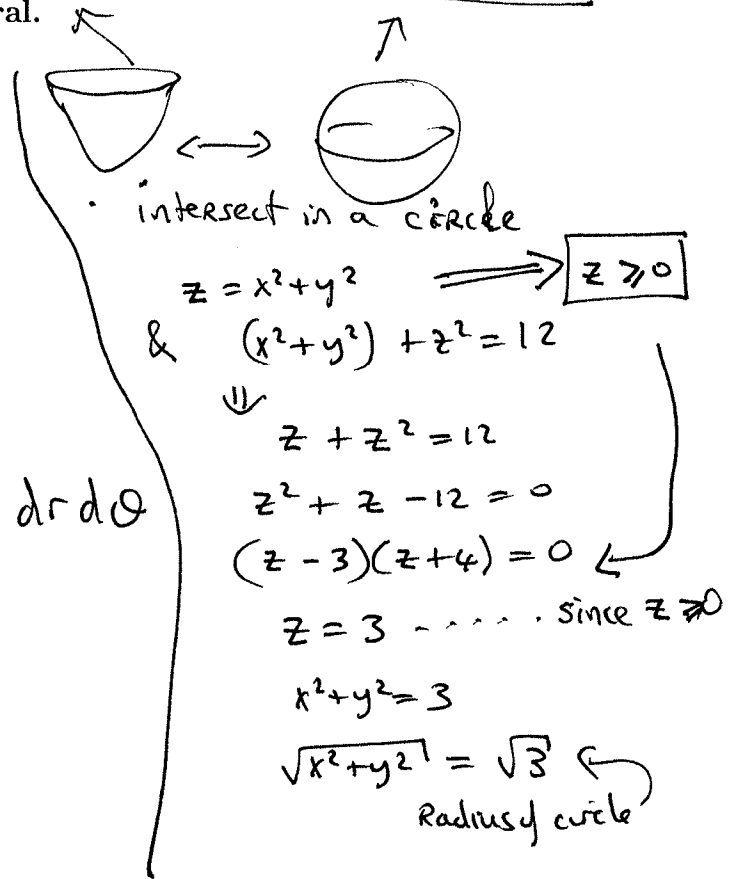 ral.
intersect in a circle
z = x² + y² ⟹ z ⩾ 0
& (x² + y²) + z² = 12
⇓
z + z² = 12
z² + z - 12 = 0
dr dθ
(z - 3)(z + 4) = 0
z = 3 ...... since z ⩾ 0
x² + y² = 3
√(x² + y²) = √3
Radius of circle